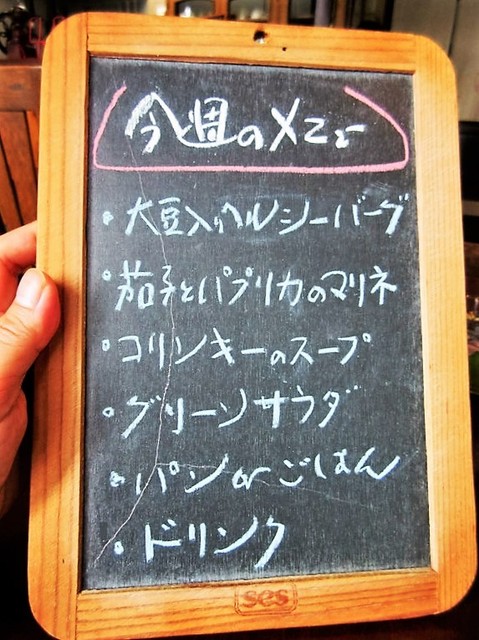 今週のメニュー
・大豆入りヘルシーバーグ
・茄子とパプリカのマリネ
・コリンキーのスープ
・グリーンサラダ
・パン or ごはん
・ドリンク
ses